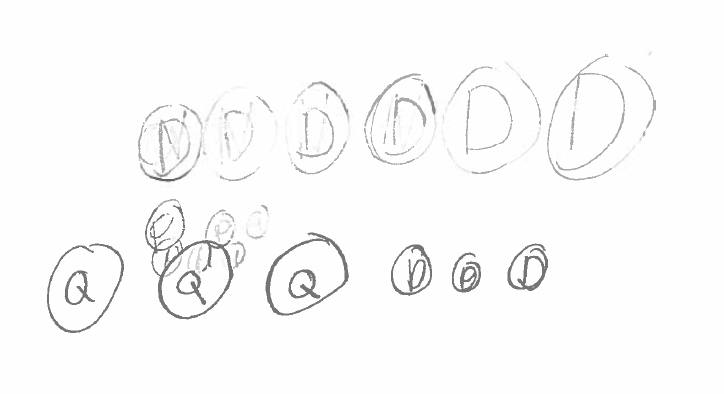 D D D D D D
Q Q Q D D D